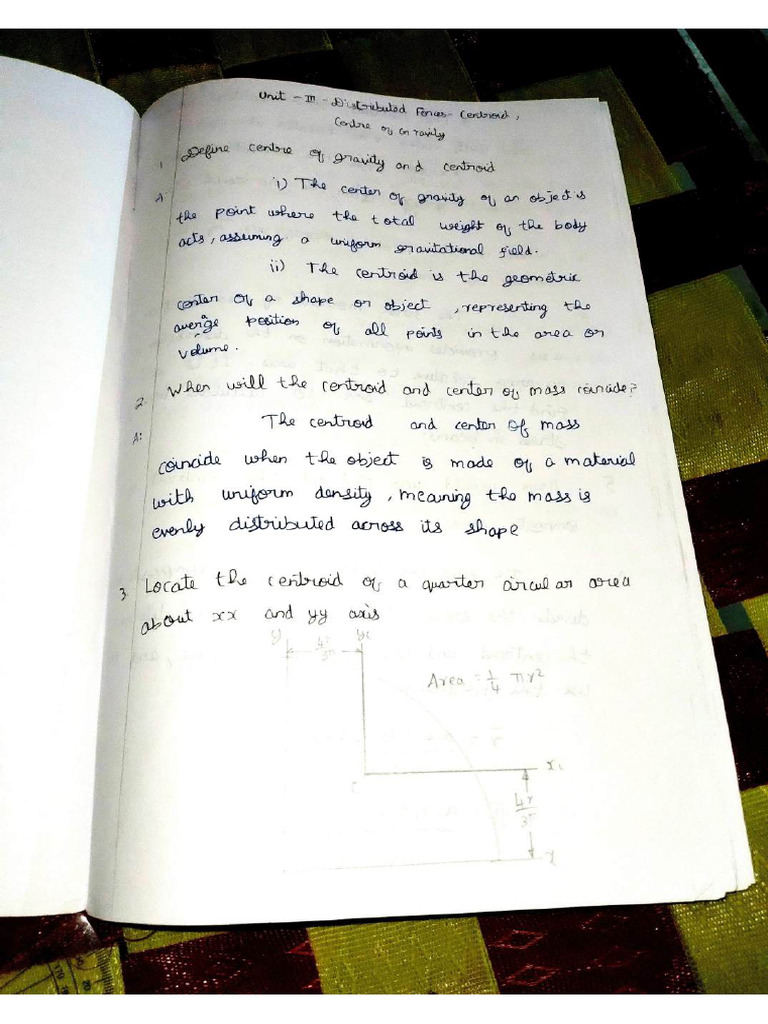 Unit - III - Distributed Forces- Centroid,
Centre of Gravity
1. Define centre of gravity and centroid
A. i) The center of gravity of an object is
the point where the total weight of the body
acts, assuming a uniform gravitational field.
ii) The centroid is the geometric
center of a shape or object, representing the
average position of all points in the area or
volume.
2. When will the centroid and center of mass coincide?
A: The centroid and center of mass
coincide when the object is made of a material
with uniform density, meaning the mass is
evenly distributed across its shape
3. Locate the centroid of a quarter circular area
about xx and yy axis
y 4r/3π yc
Area = 1/4 πr²
xc
4r/3π
x